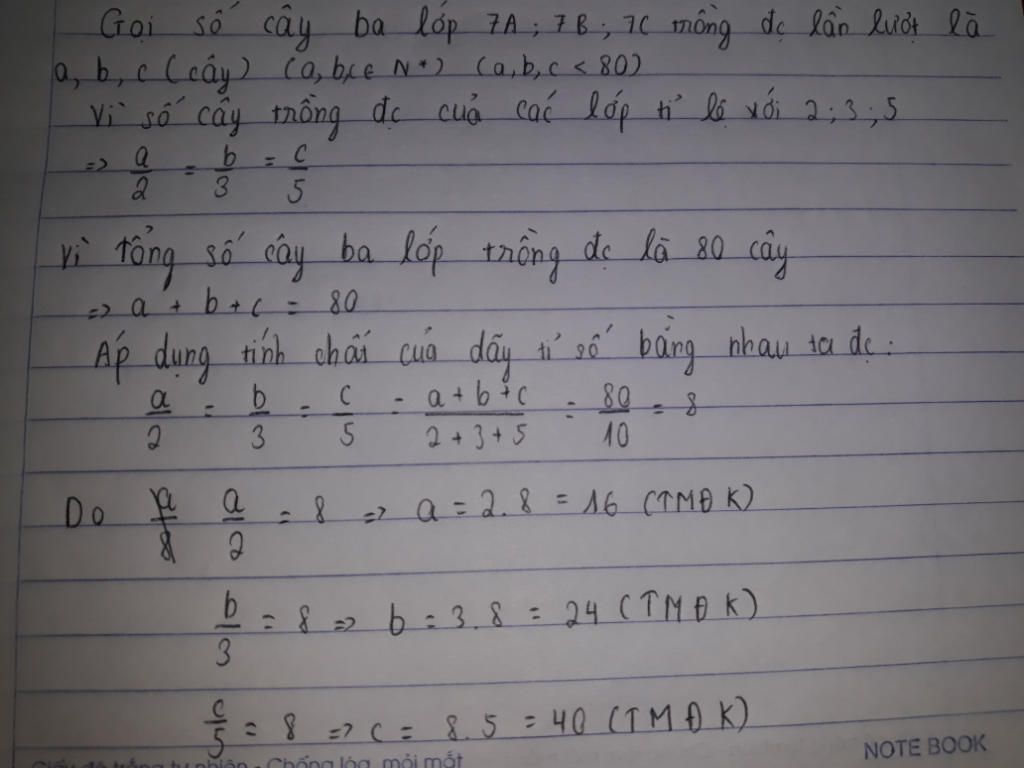 Gọi số cây ba lớp 7A; 7B; 7C trồng đc lần lượt là
a, b, c (cây) (a, b, c ∈ N*) (a, b, c < 80)
Vì số cây trồng đc của các lớp tỉ lệ với 2; 3; 5
=> a/2 = b/3 = c/5
Vì tổng số cây ba lớp trồng đc là 80 cây
=> a + b + c = 80
Áp dụng tính chất của dãy tỉ số bằng nhau ta đc:
a/2 = b/3 = c/5 = (a + b + c)/(2 + 3 + 5) = 80/10 = 8
Do a/2 = 8 => a = 2.8 = 16 (TMĐK)
b/3 = 8 => b = 3.8 = 24 (TMĐK)
c/5 = 8 => c = 8.5 = 40 (TMĐK)
NOTE BOOK
Giấy độ trắng tự nhiên - Chống lóa, mỏi mắt